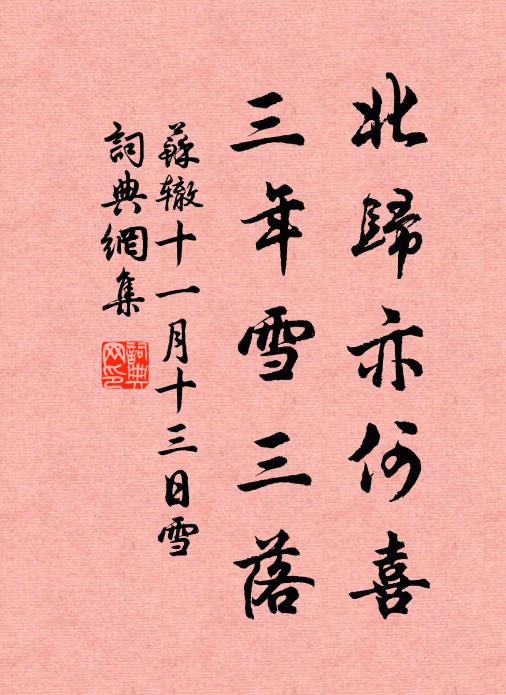 北歸亦何喜
三年雪三落
蘇辙十一月十三日雪
詞典網集
詞典网印